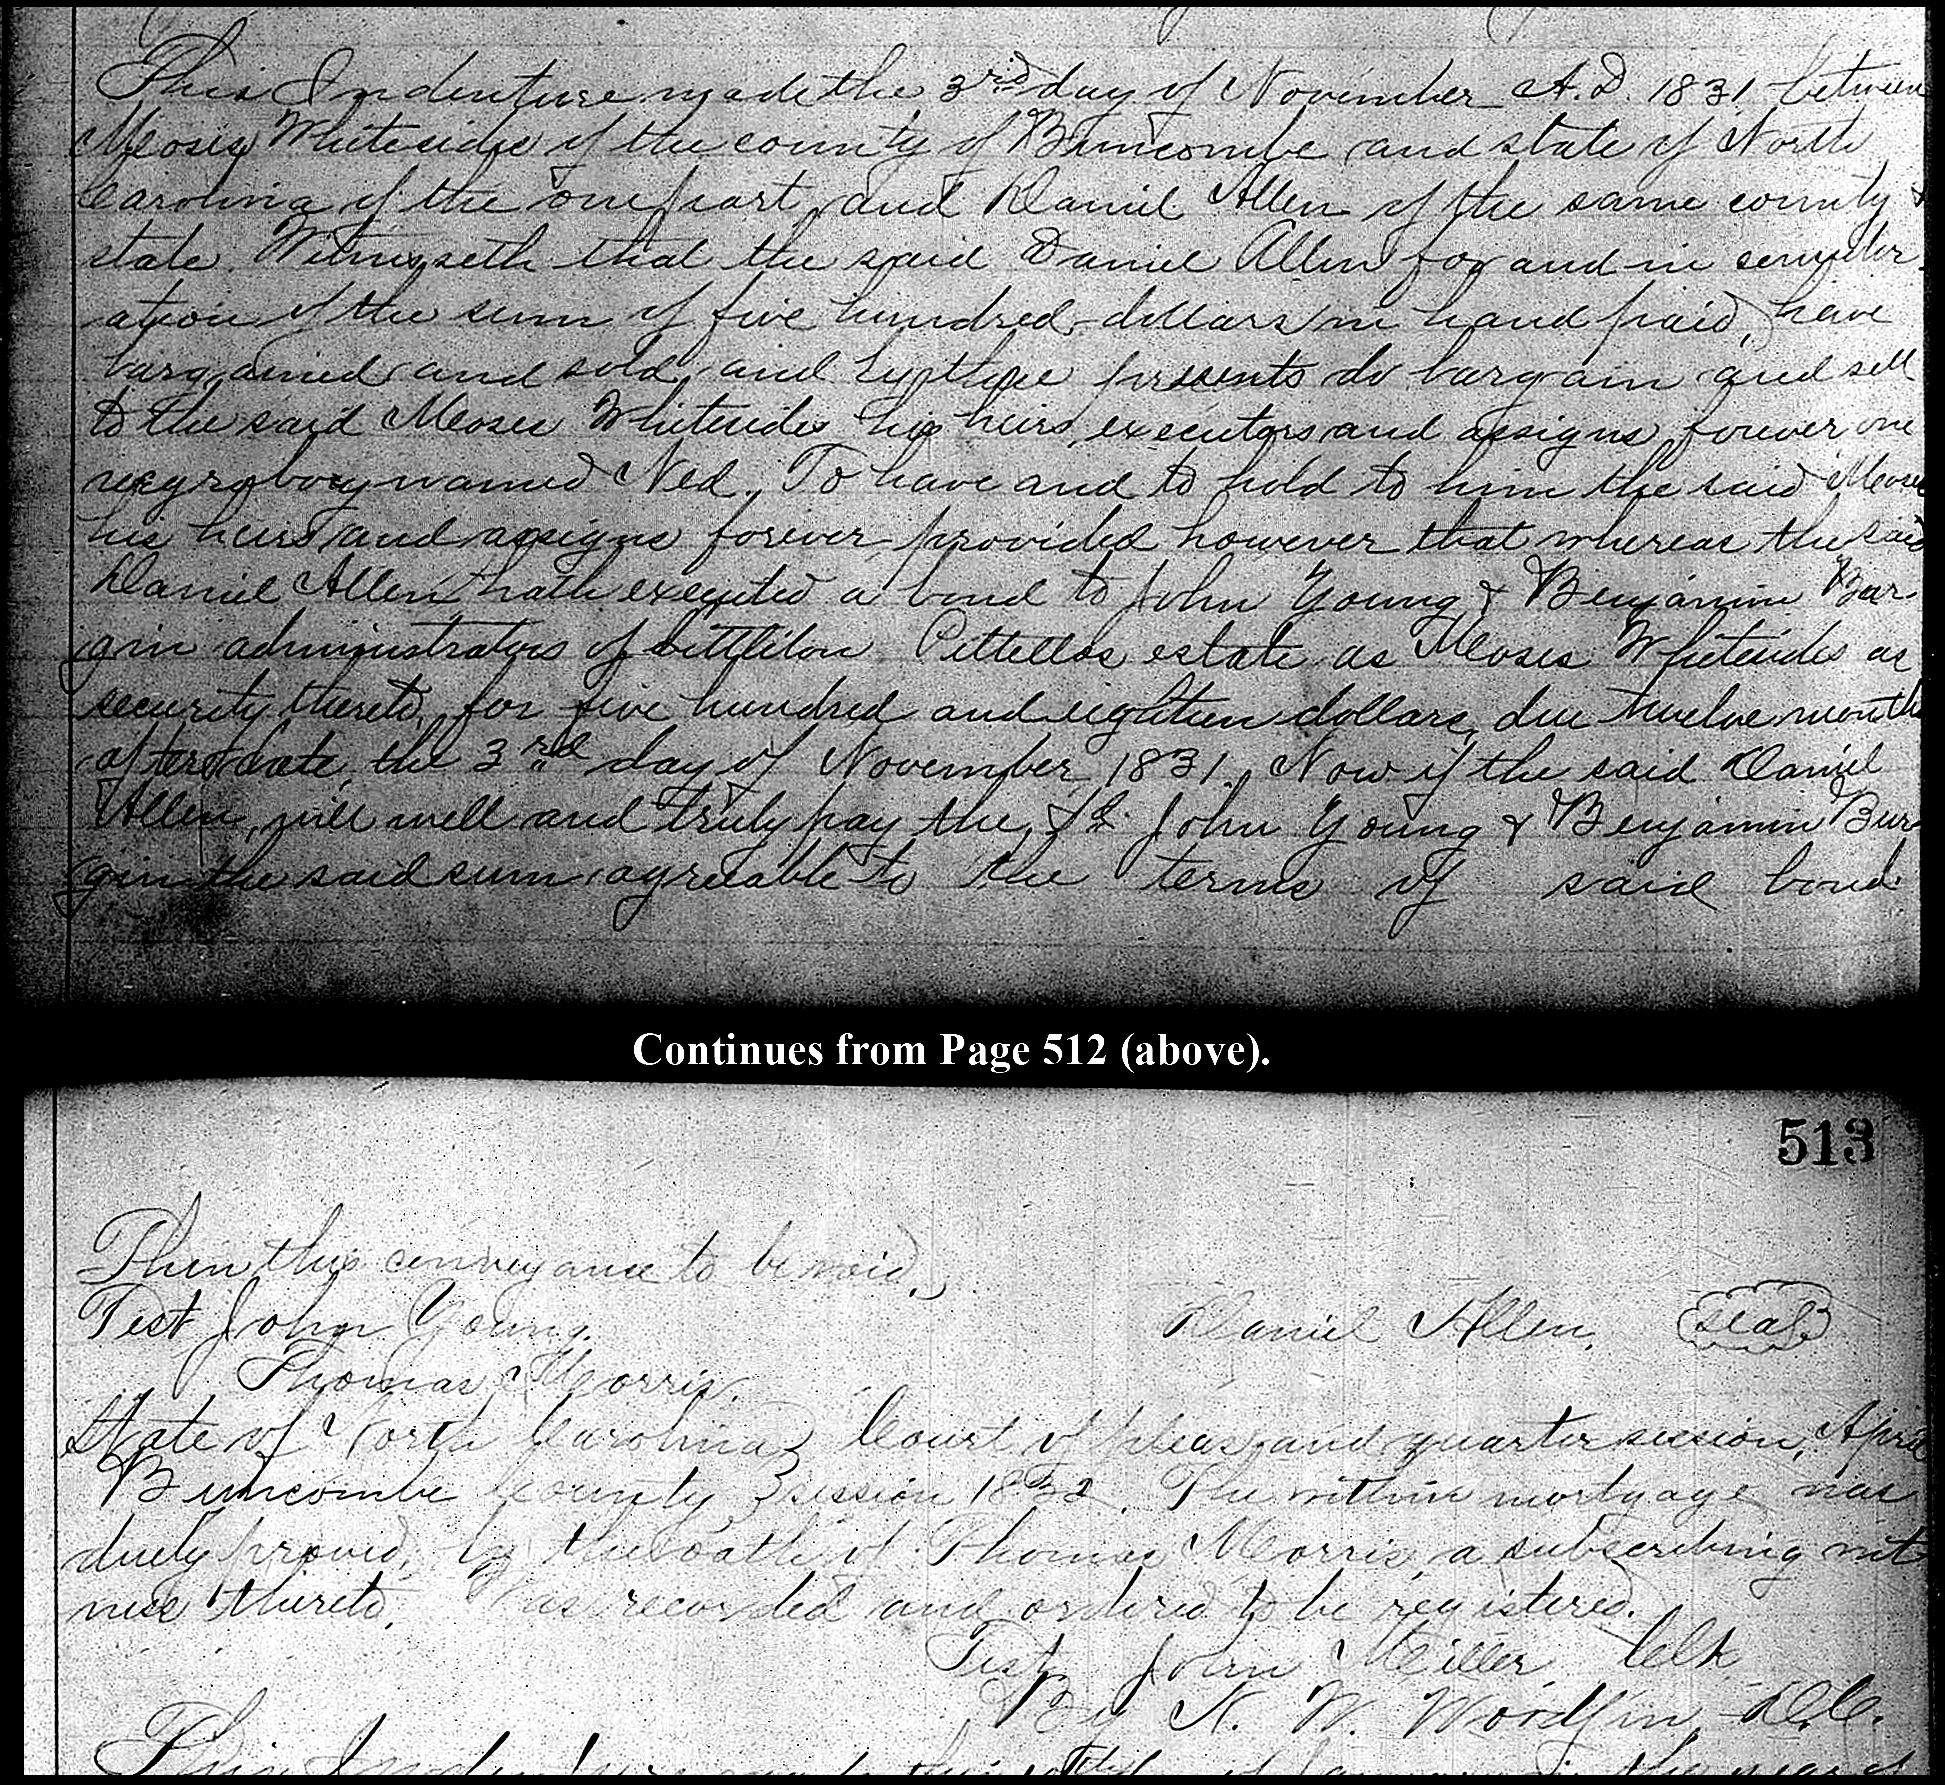 This Indenture made the 3rd day of November A.D. 1831 between
Moses Whitesides of the county of Buncombe and state of North
Carolina of the one part and Daniel Allen of the same county &
state. Witnesseth that the said Daniel Allen for and in consider-
ation of the sum of five hundred dollars in hand paid, have
bargained and sold and by these presents do bargain and sell
to the said Moses Whitesides his heirs, executors and assigns forever one
negro boy named Ned. To have and to hold to him the said Moses
his heirs and assigns forever provided however that whereas the said
Daniel Allen hath executed a bond to John Young & Benjamin Bur-
gin administrators of estate as Moses Whitesides as
security thereto, for five hundred and eighteen dollars, due twelve months
after date, the 3rd day of November 1831. Now if the said Daniel
Allen, will well and truly pay the sd. John Young & Benjamin Bur-
gin the said sum agreeable to the terms of said bond
Continues from Page 512 (above).
513
Then this conveyance to be void.
Test John Young. Daniel Allen. seal
Thomas Morris.
State of North Carolina } Court of pleas and quarter session, April
Buncombe County } session 1832. The within mortgage was
duely proved, by the oath of Thomas Morris, a subscribing wit
ness thereto, Was recorded and ordered to be registered.
Test John Miller Clk
By N. W. Woodfin D.C.
This Indenture made this of in the year of